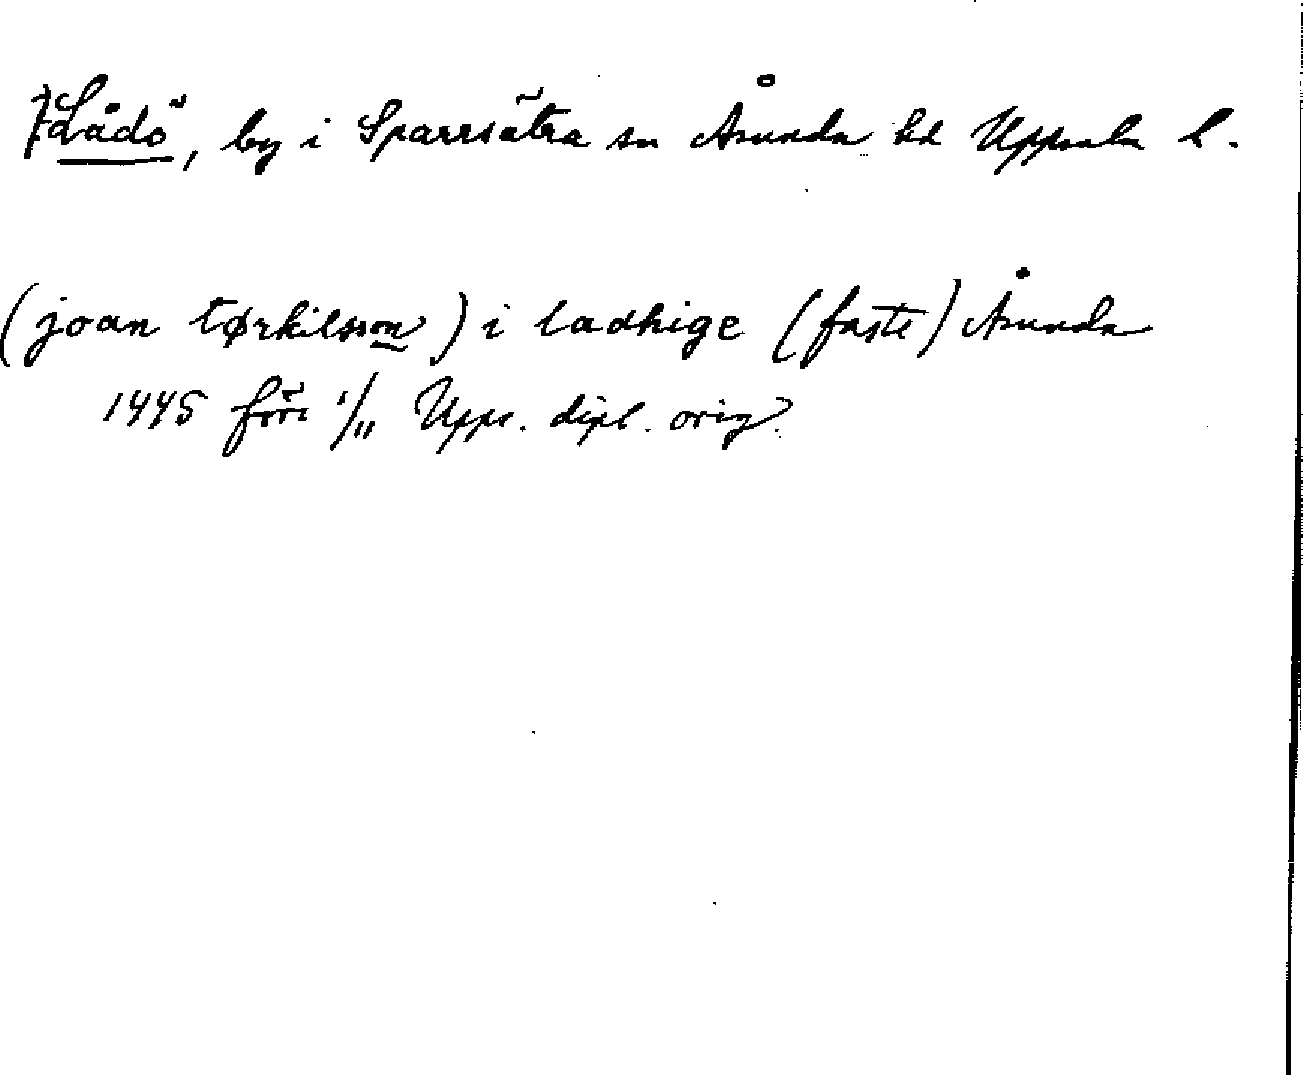 Lådö, by i Sparrsätra sn Åsunda hd Uppsala l.
(joan tørkilsson) i ladhige (faste) Åsunda
1445 före 1/11 Upps. dipl. orig.